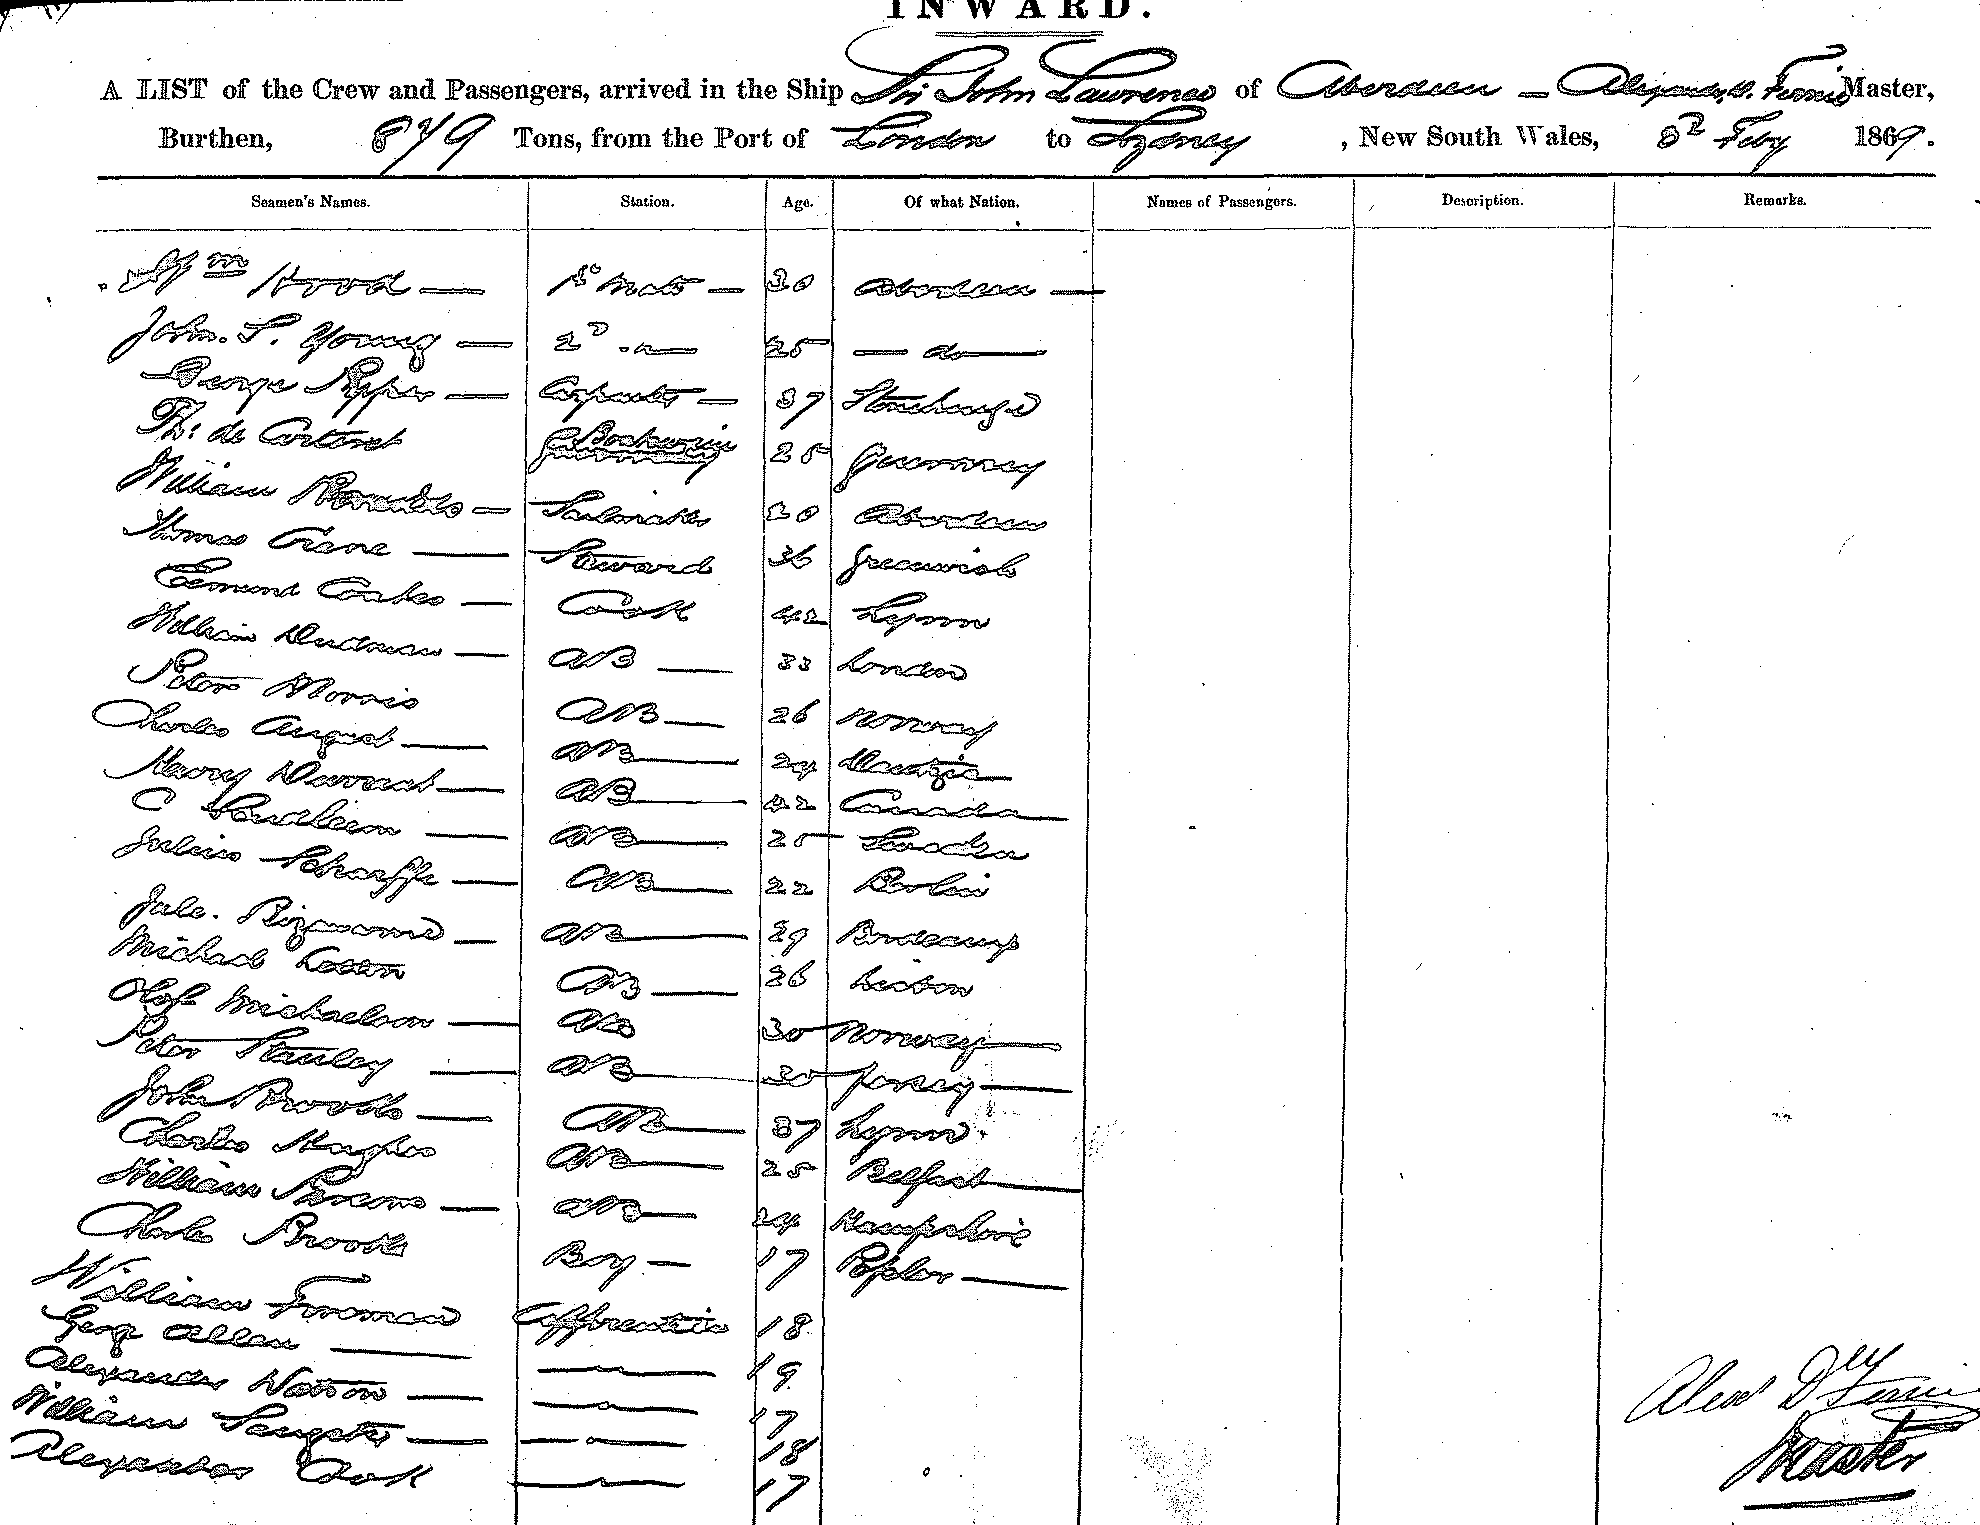 INWARD.
A LIST of the Crew and Passengers, arrived in the Ship Sir John Lawrence of Aberdeen — Master,
Burthen, 879 Tons, from the Port of London to Sydney, New South Wales, Feby 1869.
Seamen's Names. Station. Age. Of what Nation. Names of Passengers. Description. Remarks.
Wm Hood — 1st Mate — 30 Aberdeen —
John. S. Young — 2D 25 — do —
George Pepper — Carpenter — 37 Stonehenge
Th: de Carteret Boatswain 25 Guernsey
William — Sailmaker 20 Aberdeen
Thomas Crane — Steward 36 Greenwich
Edmund Coates — Cook 42 Lynn
William Dudman — AB — 33 London
Peter Morris AB — 26 Norway
Charles August — AB — 24 Dantzic
Harry Durrant — AB — 42 Canada
C — AB — 25 Sweden
Julius Scharffe — AB — 22 Berlin
Jule. — AB — 29 Bordeaux
Michael AB — 26 Lisbon
Olof Michaelson — AB 30 Norway —
Peter Stanley — AB — 30 Jersey —
John Brooks — AB — 37 Lynn.
Charles Hughes AB — 25 Belfast —
William Parsons — AB — 24 Hampshire
Charles Brooks Boy — 17 Poplar —
William Foreman Apprentice 18
George Allen — — " — 19
Alexander Watson — — " — 17
William Sangster — — " — 18
Alexander Cook — " — 17
Alexr Master